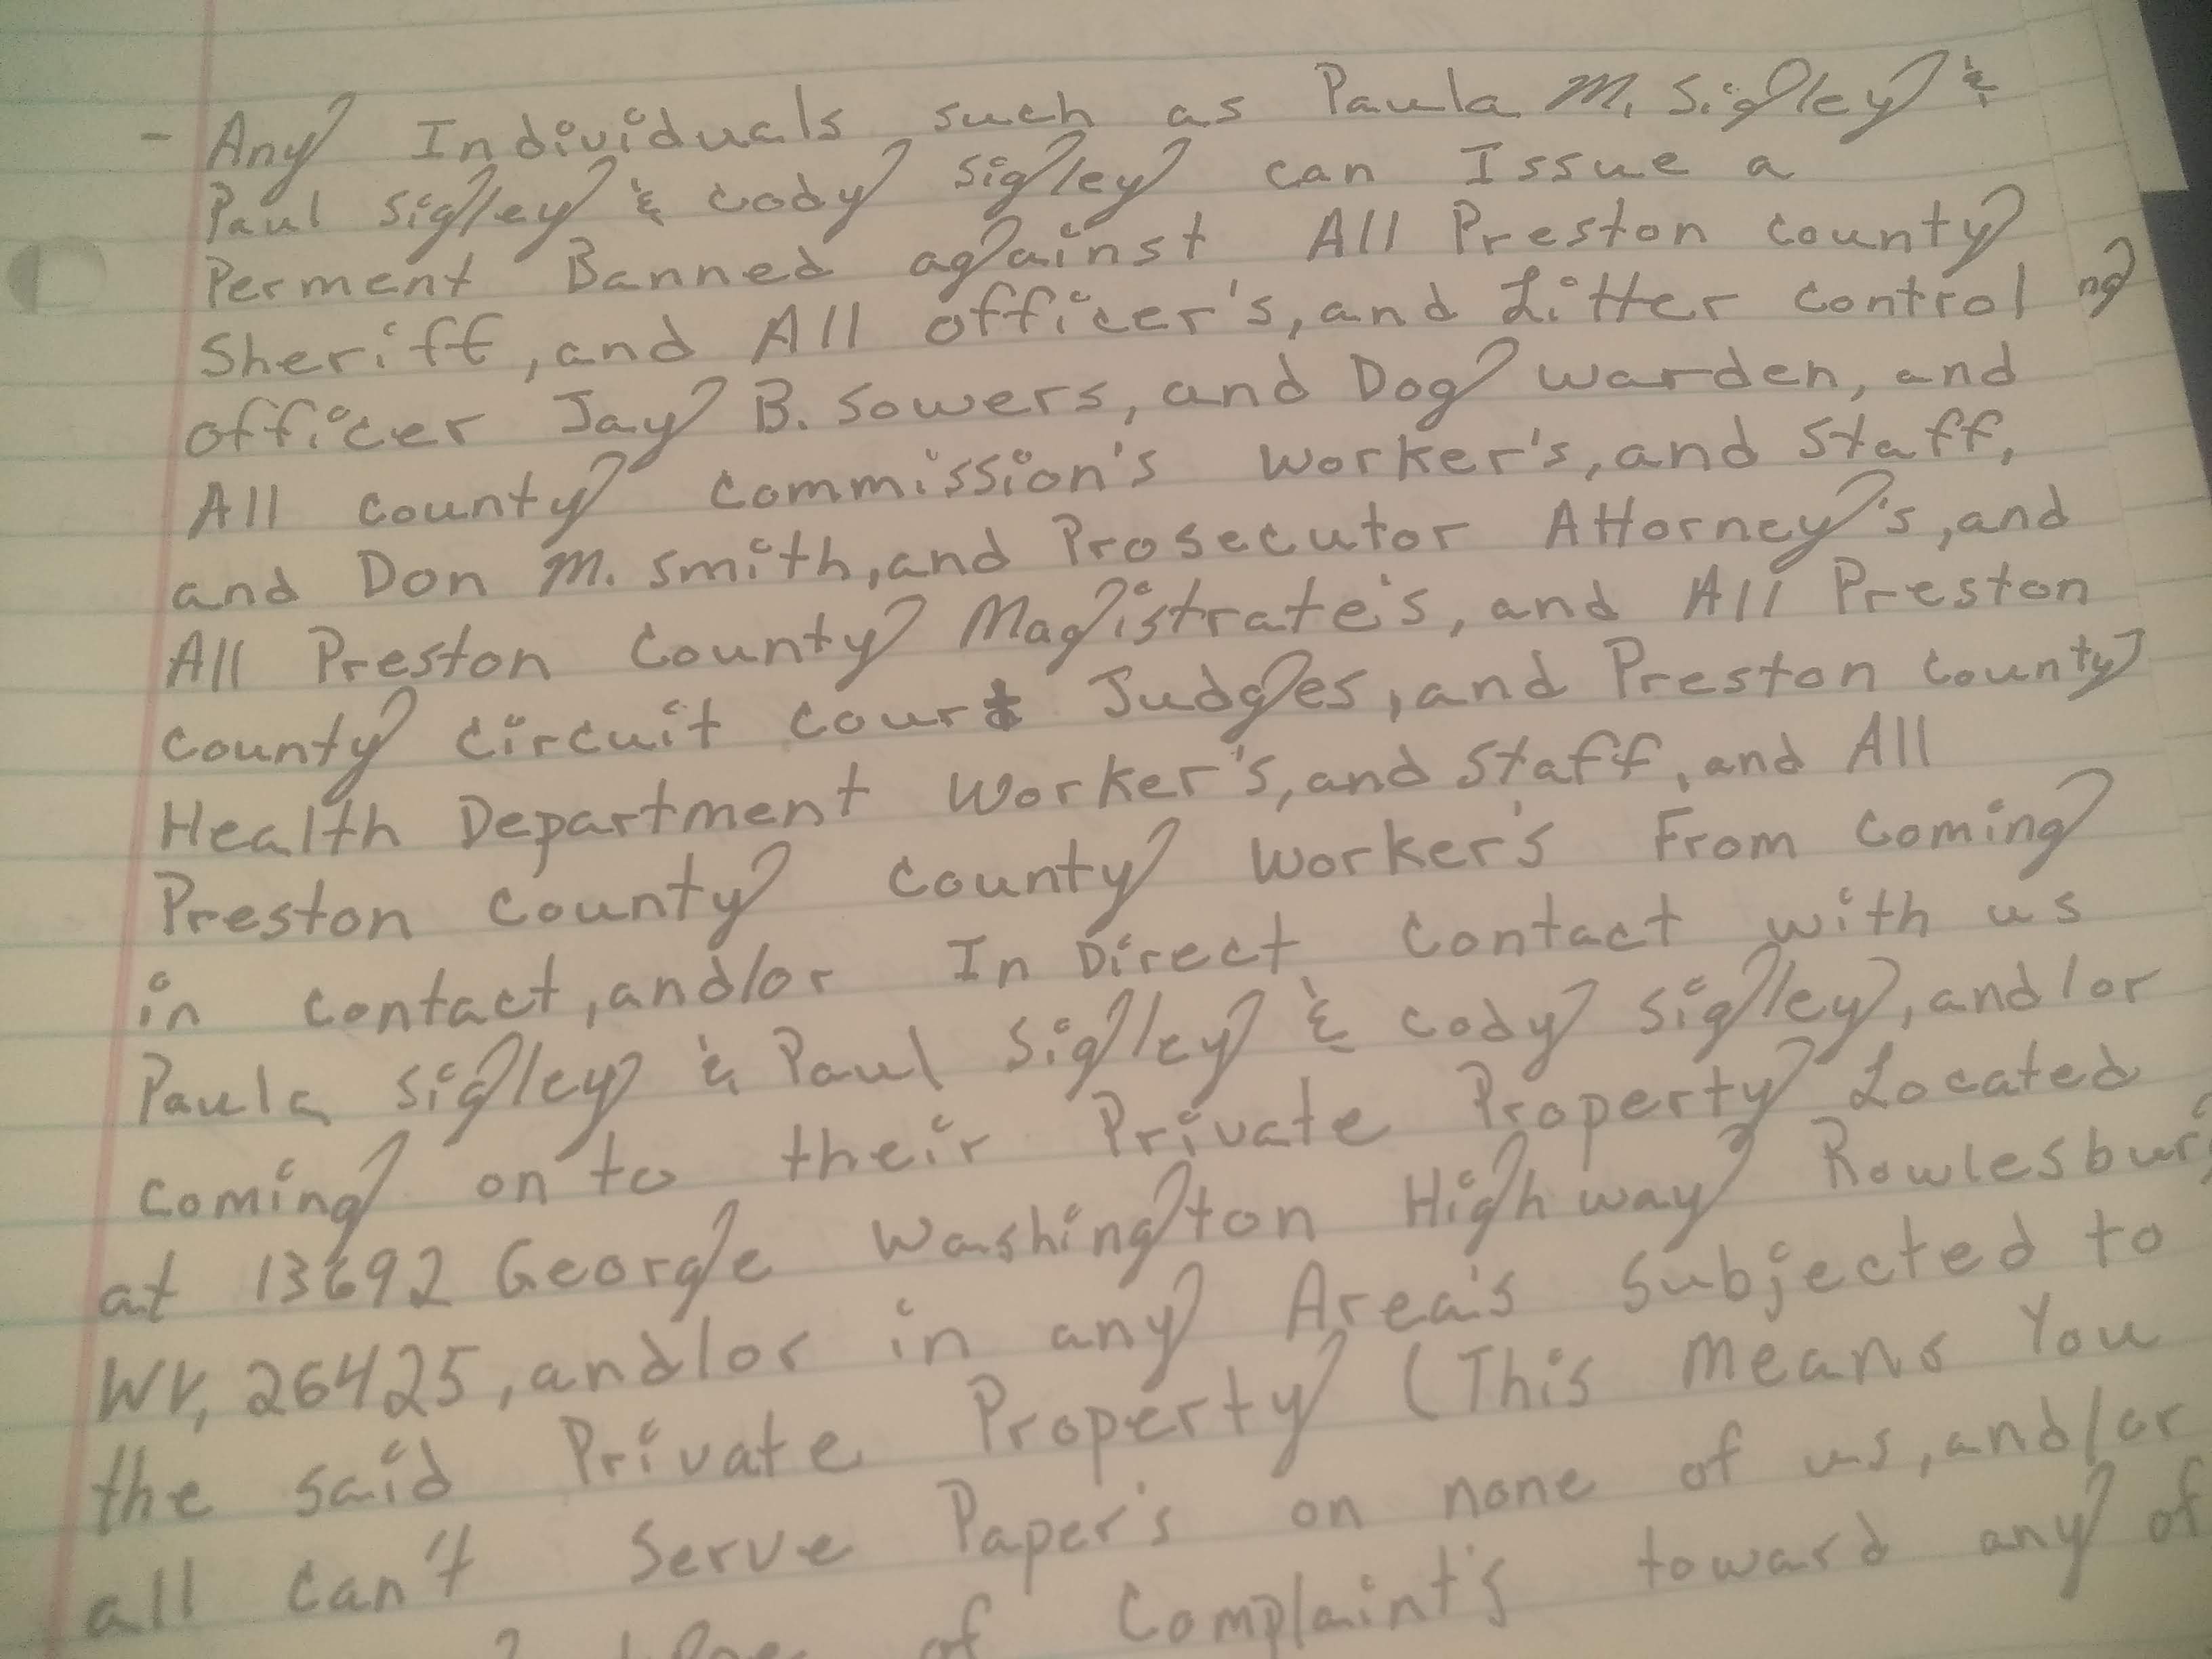 - Any Individuals such as Paula M. Sigley &
Paul Sigley & Cody Sigley can Issue a
Perment Banned against All Preston County
Sheriff, and All officer's, and Litter Control
officer Jay B. Sowers, and Dog Warden, and
All County Commission's Worker's, and Staff,
and Don M. Smith, and Prosecutor Attorney's, and
All Preston County Magistrate's, and All Preston
County Circuit Court Judges, and Preston County
Health Department Worker's, and Staff, and All
Preston County County Worker's From Coming
in contact, and/or In Direct Contact with us
Paula Sigley & Paul Sigley & Cody Sigley, and/or
Coming on to their Private Property Located
at 13692 George Washington Highway
WV, 26425, and/or in any Area's Subjected to
the said Private Property (This means You
all can't Serve Paper's on none of us, and/or
of Complaint's toward any of